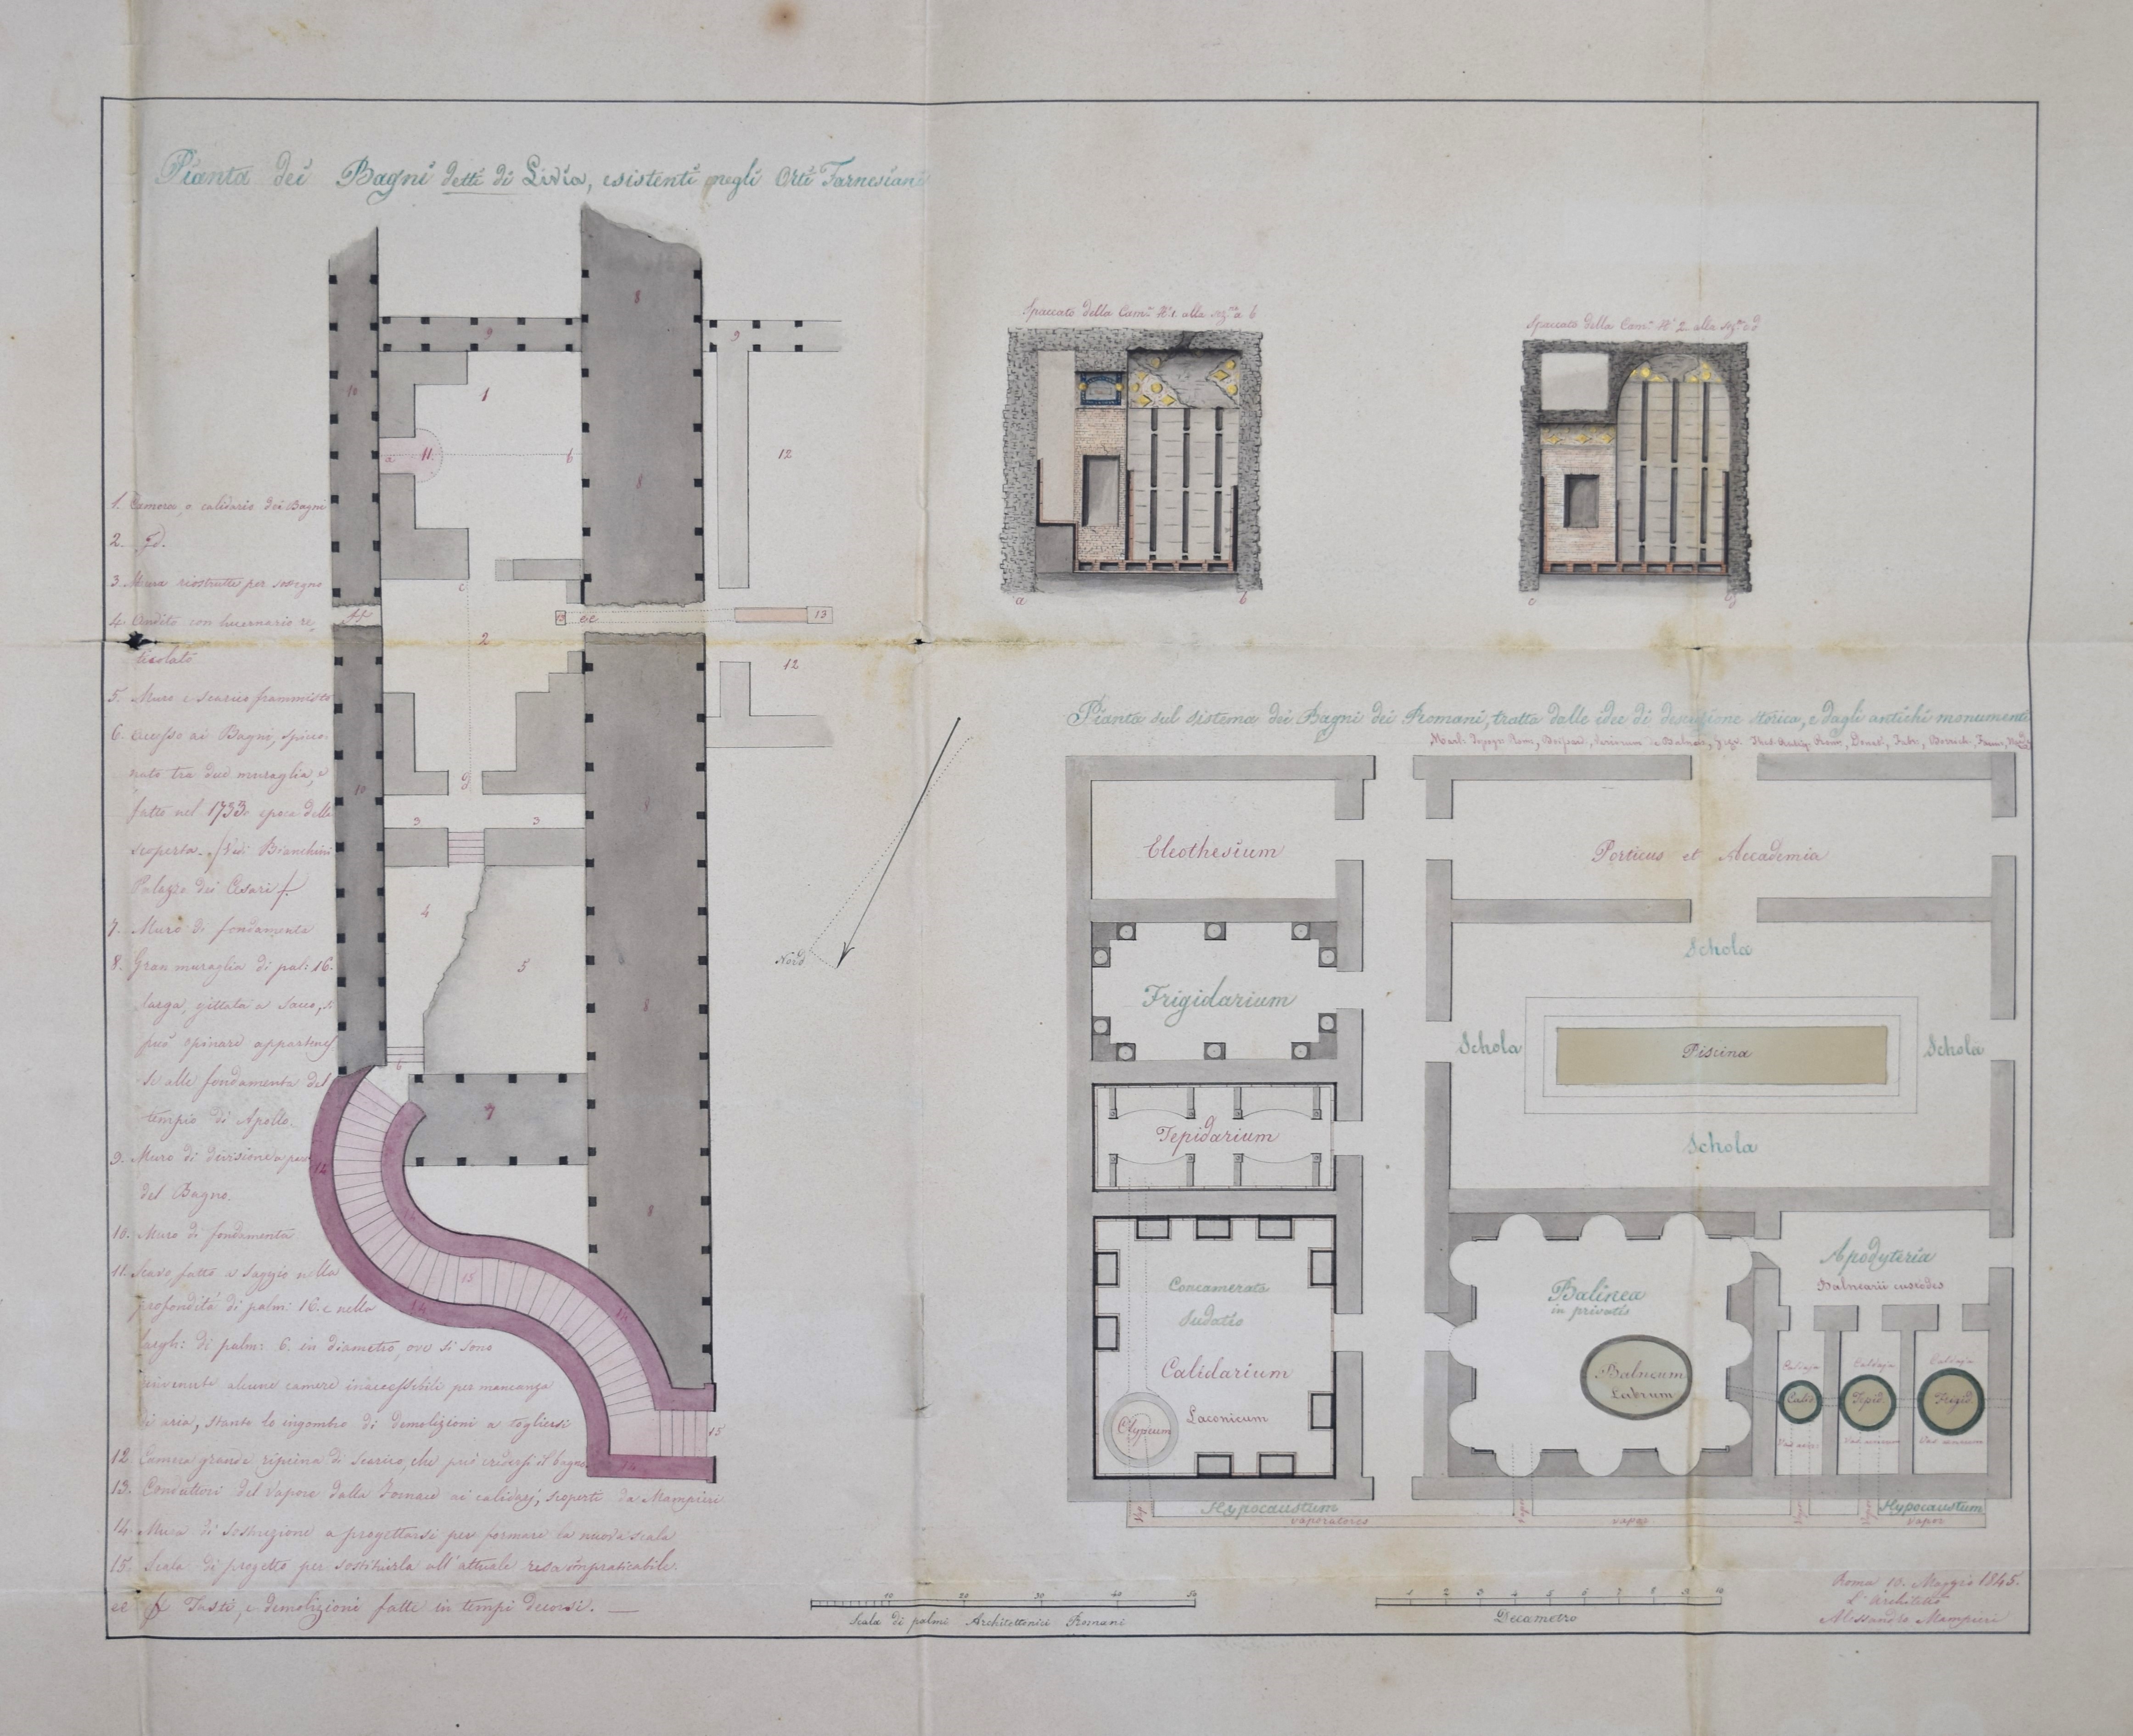 Pianta dei Bagni detti di Livia, esistenti negli Orti Farnesiani
1. Camera, o calidario dei Bagni
2. Id.
3. Mura riostrutte per sostegno
4. Andito con lucernario re
ticolato
5. Muro e scarico frammisto
6. Accesso ai Bagni,
nato tra due muraglia, e
fatto nel 1733. epoca della
scoperta. (Vedi Bianchini
Palazzo dei Cesari).
7. Muro di fondamenta
8. Gran muraglia di pal: 16.
larga, gittata a sacco, si
può opinare appartenes
se alle fondamenta del
tempio di Apollo.
9. Muro di divisione
del Bagno.
10. Muro di fondamenta
11. Scavo fatto a saggio nella
profondità di palm: 16. e nella
largh: di palm: 6. in diametro, ove si sono
rinvenute alcune camere inaccessibili per mancanza
di aria, stante lo ingombro di demolizioni a togliersi
12. Camera grande ripiena di scarico, che può credersi il bagno
13. Conduttori del vapore dalla Fornace ai calidarj, scoperti da Mampieri
14. Mura di sostruzione a progettarsi per formare la nuova scala
15. Scala di progetto per sostituirla all'attuale resa impraticabile.
ee ff Tasti, e demolizioni fatte in tempi decorsi.
8
9
9
10
1
8
a
11
b
12
c
ff
ee
13
2
12
10
d
3
3
8
4
5
8
6
7
12
14
8
15
14
14
15
14
Nord
Spaccato della Cam.ra N.1. alla sez.ne a b
a
b
Spaccato della Cam.ra N.2. alla sez.ne c d
c
d
Pianta sul sistema dei Bagni dei Romani, tratta dalle idee di descrizione storica, e dagli antichi monumenti
Eleothesium
Porticus et Accademia
Frigidarium
Schola
Schola
Piscina
Schola
Schola
Tepidarium
Concamerata
Sudatio
Calidarium
Laconicum
Clypeum
Balinea
in privatis
Balneum
Labrum
Apodyteria
Balnearii custodes
Caldaja
Caldaja
Caldaja
Calid.
Tepid.
Frigid.
Hypocaustum
Hypocaustum
Vap
vaporatores
Vapor
vapor
vapor
10
20
30
40
50
Scala di palmi Architettonici Romani
1
2
3
4
5
6
7
8
9
10
Decametro
Roma 10. Maggio 1845.
L'Architetto
Alessandro Mampieri